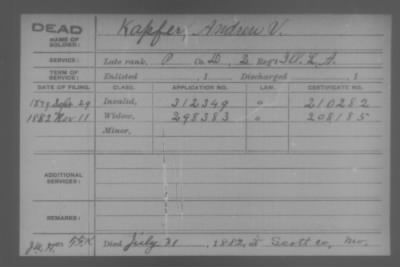 DEAD
NAME OF SOLDIER:
Kapfer, Andrew V.
SERVICE:
Late rank, P Co. D, 2. Reg't Ill. L. A.
TERM OF SERVICE:
Enlisted , 1 Discharged , 1
DATE OF FILING. CLASS. APPLICATION NO. LAW. CERTIFICATE NO.
1879 Sept. 29 Invalid, 312349 " 210282
1882 Nov 11 Widow, 298383 " 208185
Minor,
ADDITIONAL SERVICES:
REMARKS:
Died July 21, 1882, at Scott Co, Mo.